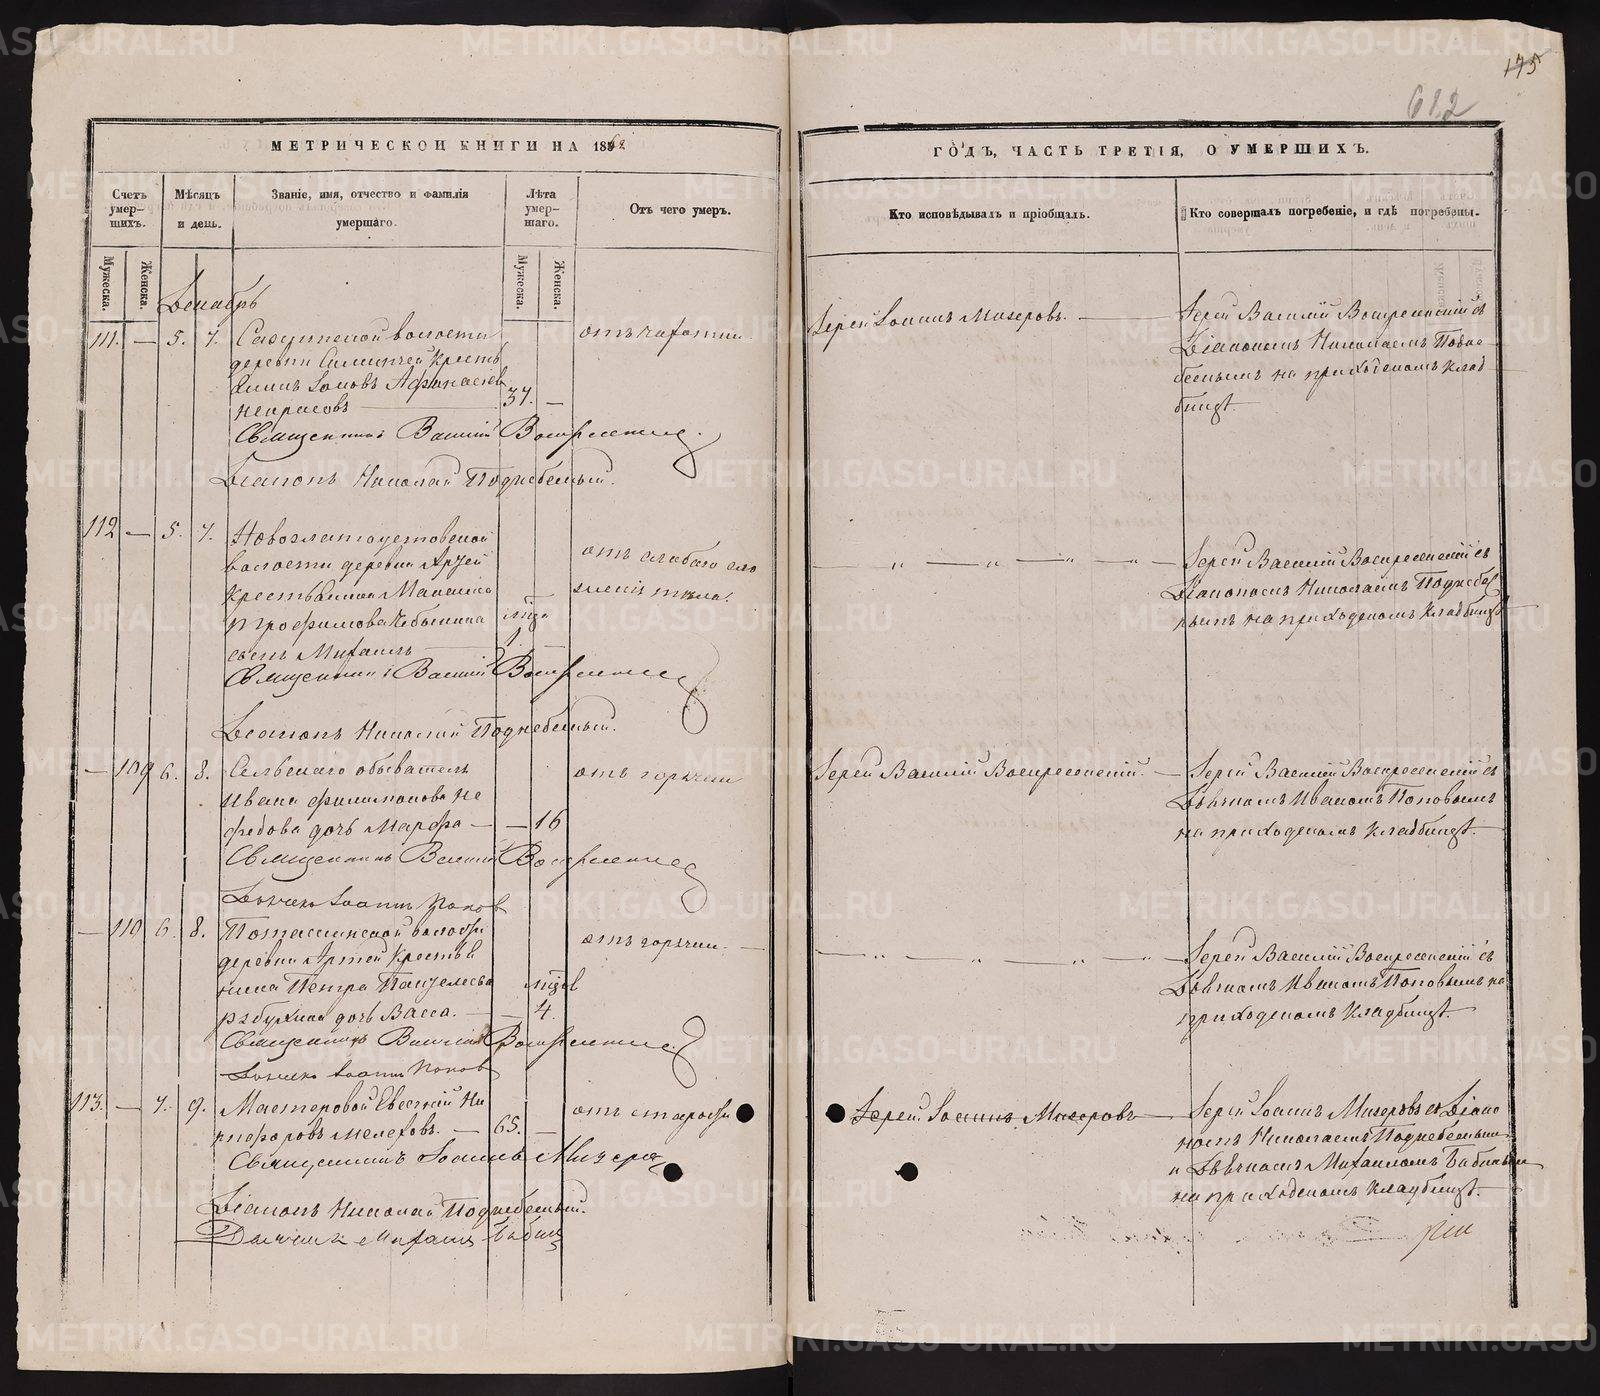 175
612
МЕТРИЧЕСКОЙ КНИГИ НА 1862
ГОДЪ, ЧАСТЬ ТРЕТІЯ, О УМЕРШИХЪ.
Счетъ умер-шихъ.
Мѣсяцъ и день.
Званіе, имя, отчество и фамилія умершаго.
Лѣта умер-шаго.
Отъ чего умеръ.
Кто исповѣдывалъ и пріобщалъ.
Кто совершалъ погребеніе, и гдѣ погребены.
Мужеска.
Женска.
Мужеска.
Женска.
Декабрь
111. — 5. 7.
волости
деревни крестья
нинъ Афанасіевъ
Некрасовъ — 37. —
отъ чахотки.
Іерей Іоаннъ Мизеровъ. —
Іерей Василій Воскресенскій съ
Діакономъ Николаемъ Подне-
беснымъ на приходскомъ клад-
бищѣ.
Священникъ Василій Воскресенскій.
Діаконъ Николай Поднебесный.
112 — 5. 7.
Новозлатоустовской
волости деревни
крестьянина
Трофимова
сынъ Михаилъ —
1
отъ слабаго сло
женія тѣла.
— „ — „ — „ — „ —
Іерей Василій Воскресенскій съ
Діакономъ Николаемъ Поднебес
нымъ на приходскомъ кладбищѣ
Священникъ Василій Воскресенскій
Діаконъ Николай Поднебесный.
— 109 6. 8.
Сельскаго обывателя
Ивана Филимонова Не
федова дочь Марфа — — 16
отъ горячки
Іерей Василій Воскресенскій. —
Іерей Василій Воскресенскій съ
Дьячкомъ Иваномъ Поповымъ
на приходскомъ кладбищѣ.
Священникъ Василій Воскресенскій
Дьячекъ Іоаннъ Попов
— 110 6. 8.
Поташинской волости
деревни Артей крестья
нина Петра
дочь Васса. — — 4.
отъ горячки. —
— „ — „ — „ — „ —
Іерей Василій Воскресенскій съ
Дьячкомъ Иваномъ Поповымъ на
приходскомъ кладбищѣ.
Священникъ Василій Воскресенскій
Дьячекъ Іоаннъ Попов
113. — 7. 9.
Мастеровой Евсевій Ни
кифоровъ — 65. —
отъ старости
Іерей Іоаннъ Мизеровъ —
Іерей Іоаннъ Мизеровъ съ Діако
номъ Николаемъ Поднебеснымъ
и Дьячкомъ Михаиломъ Бабинымъ
на приходскомъ кладбищѣ.
Священникъ Іоаннъ Мизеровъ
Діаконъ Николай Поднебесный.
Дьячекъ Михаилъ Бабинъ
METRIKI.GASO-URAL.RU